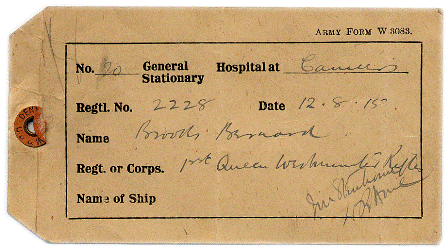 ARMY FORM W 3083.
No. 20 General Stationary Hospital at Camiers
Regtl. No. 2228 Date 12.8.15
Name Brooks Bernard
Regt. or Corps. 1st Queen Westminster Rifles
Name of Ship